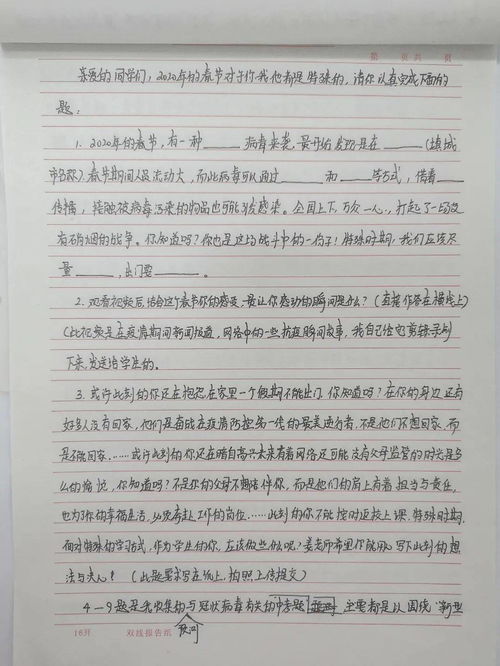 第 页共 页
亲爱的同学们，2020年的春节对于你我他都是特殊的，请你认真完成下面的
题：
1. 2020年的春节，有一种______病毒来袭，最开始发现是在______（填城
市名称）春节期间人员流动大，而此病毒可以通过______和______等方式，借着______
传播，接触被病毒污染的物品也可能引发感染。全国上下，万众一心，打起了一场没
有硝烟的战争。你知道吗？你也是这场战斗中的一份子！特殊时期，我们应该尽
量______，出门要______。
2. 观看视频后，结合这个春节你的感受，最让你感动的瞬间是什么？（直接作答在横线上）
（此视频是在疫情期间新闻报道，网络中的一些抗疫瞬间故事，我自己给它剪辑录制
下来，发送给学生的。
3. 或许此刻的你还在抱怨在家里一个假期不能出门，你知道吗？在你的身边还有
好多人没有回家，他们是奋战在疫情防控第一线的最美逆行者，不是他们不想回家，而
是不能回家……或许此刻的你还在暗自高兴未来有着网络还可能没有父母监管的时光是多
么的愉悦，你知道吗？不是你的父母不想陪伴你，而是他们的肩上有着担当与责任，
也为了你的幸福生活，必须奔赴工作的岗位……此刻的你不能按时返校上课，特殊时期，
面对特殊的学习方式，作为学生的你，应该做些什么呢？姜老师希里你能用心写下此刻的想
法与决心！（此题要求写在纸上，拍照上传提交）
4-9题是我收集的与冠状病毒有关的中考题 主要都是以围绕“新型
16开 双线报告纸